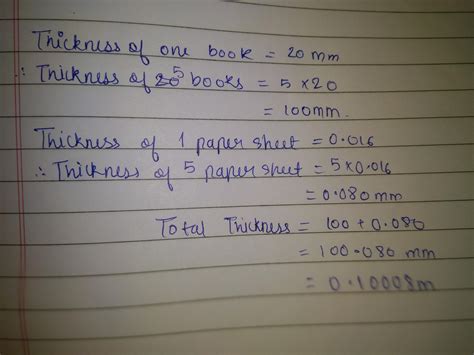 Thickness of one book = 20 mm
∴ Thickness of 5 books = 5 × 20
= 100mm.
Thickness of 1 paper sheet = 0.016
∴ Thickness of 5 paper sheet = 5×0.016
= 0.080 mm
Total Thickness = 100 + 0.080
= 100.080 mm
= 0.10008m